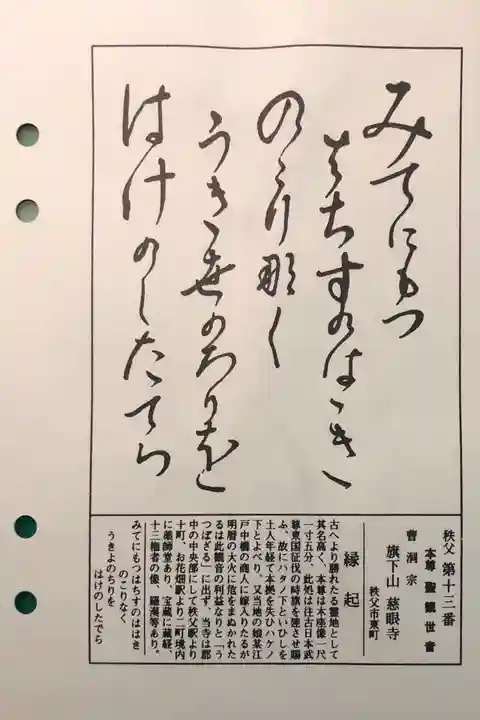 みてにもつ
はちすのはゝき
のこり那く
うき世のちりを
はけのしたてら
秩父 第十三番
本尊 聖観世音
曹洞宗
旗下山 慈眼寺
秩父市東町
縁起
古へより勝れたる霊地として
其名高く、本尊は木座像一尺
一寸五分、此処は往古日本武
尊東国征伐の時旗を建させ賜
ふ、故にハタノ下といひしを
土人年経て本拠を失ひハケノ
下とよべり、又当地の娘某江
戸中橋の商人に嫁入りたるが
明暦の大火に危をまぬかれた
るは此観音の利益なりと「う
つぼざる」に出ず、当寺は郡
中の中央部にして秩父駅より
十町、お花畑駅より二町境内
に薬師堂あり、宝蔵に蔵経、
十三権者の像、額湊等あり。
みてにもつはちすのははき
のこりなく
うきよのちりを
はけのしたでら